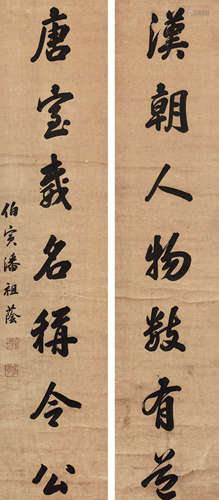 漢朝人物數有道
唐室威名稱令公
伯寅潘祖蔭